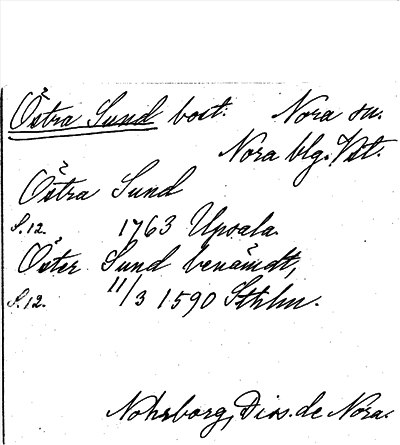 Östra Sund bost: Nora sn.
Nora blg. Vst.
Östra Sund
S. 12. 1763 Upsala.
Öster Sund benämdt,
S. 12. 11/3 1590 Sthlm.
Nohrborg, Diss. de Nora.